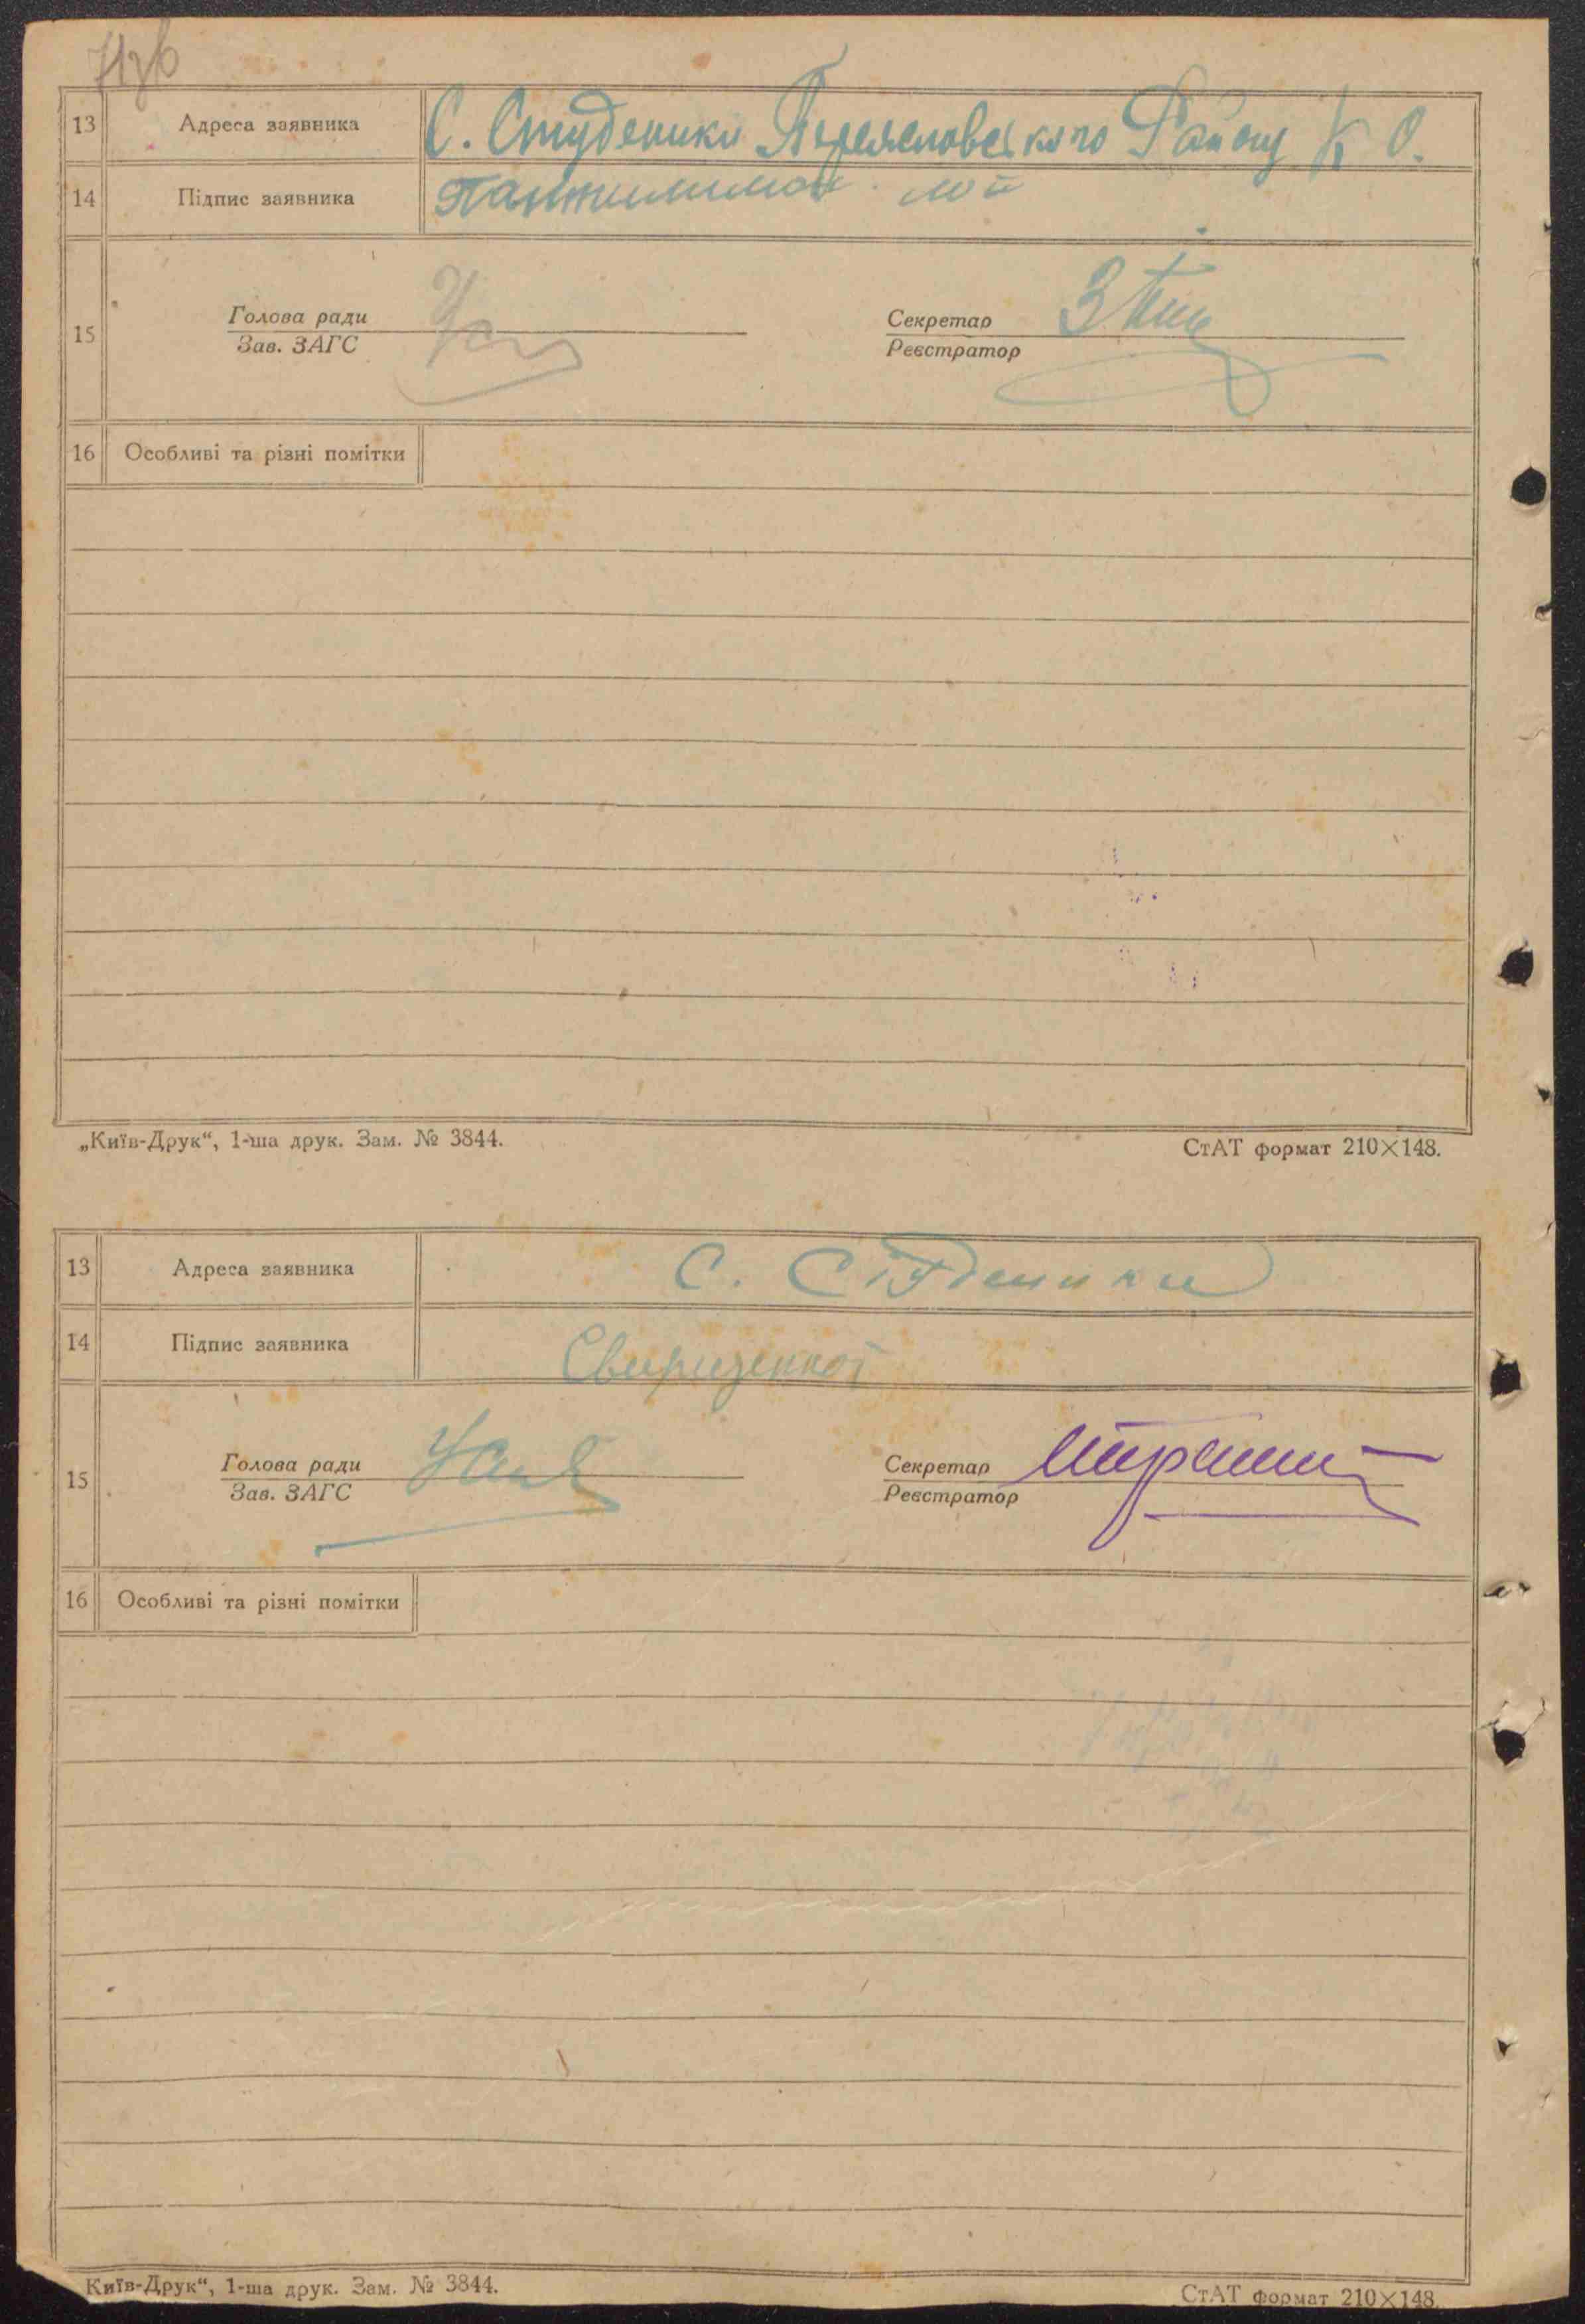 71зв
13 Адреса заявника С. Студеники Переяславського Району К О.
14 Підпис заявника
15 Голова ради Секретар
Зав. ЗАГС Реєстратор
16 Особливі та різні помітки
„Київ-Друк“, 1-ша друк. Зам. № 3844. СтАТ формат 210×148.
13 Адреса заявника С. Студеники
14 Підпис заявника
15 Голова ради Секретар
Зав. ЗАГС Реєстратор
16 Особливі та різні помітки
Київ-Друк“, 1-ша друк. Зам. № 3844. СтАТ формат 210×148.